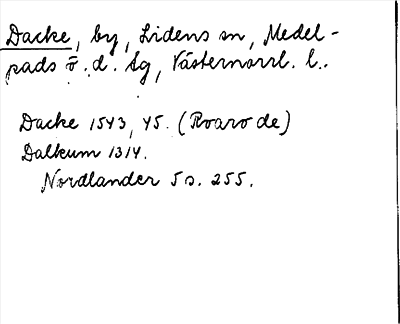 Dacke, by, Lidens sn, Medel-
pads ö. d. sg, Västernorrl. l.
Dacke 1543, 45. (Roaro de)
Dalkum 1314.
Nordlander 5 s. 255.